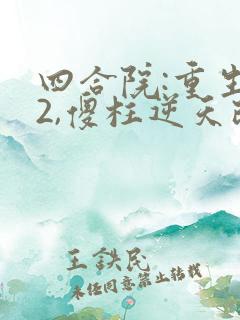 四合院:重生
2,傻柱逆天改
王铁民
未经同意禁止转载